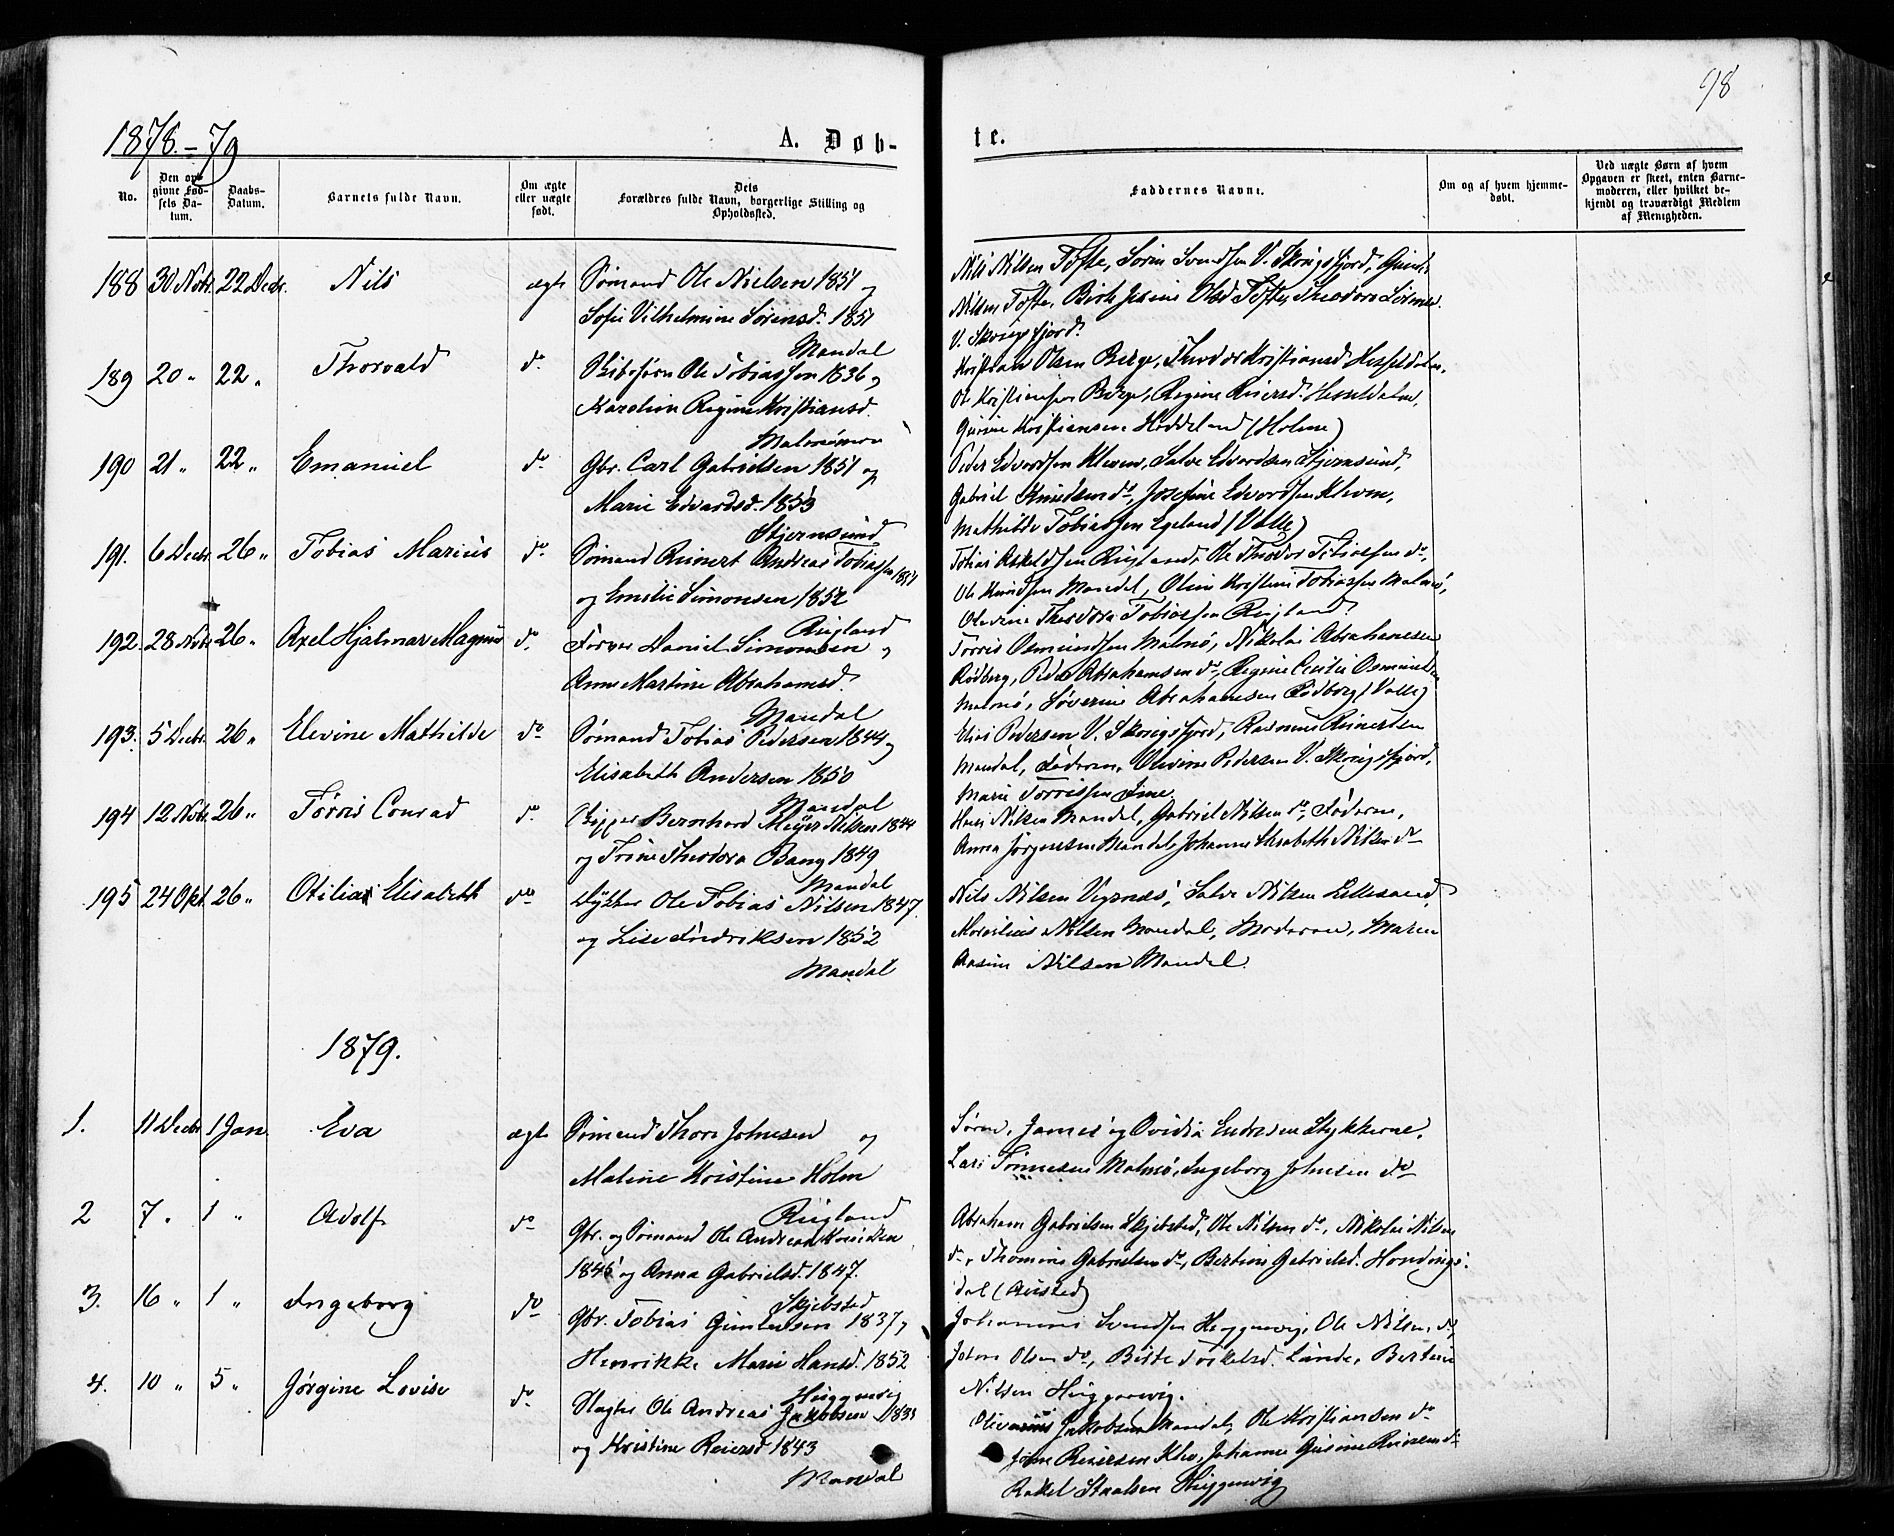 98
1878.-79
A. Døb-
te.
No.
Den op-
givne Fød-
sels Da-
tum.
Daabs-
Datum.
Barnets fulde Navn.
Om ægte
eller uægte
født.
Dets
Forældres fulde Navn, borgerlige Stilling og
Opholdssted.
Faddernes Navne.
Om og af hvem hjemme-
døbt.
Ved uægte Børn af hvem
Opgaven er skeet, enten Barne-
moderen, eller hvilket be-
kjendt og troværdigt Medlem
af Menigheden.
188 30 Novbr. 22 Decbr. Nils ægte Sømand Ole Nielsen 1851 og
Sofie Vilhelmine Sørensd. 1851
Mandal
Nils Nilsen Tofte, Sørin Svendsen V. Skogsfjord,
Nilsen Tofte, Olsd. Tofte, Theodora
V. Skogsfjord.
189 20 " 22 " Thorvald do. Skibstøm. Ole Tobiassen 1836 og
Karoline Regine Kristiansd.
Malmø
Kristian Olsen Berge, Theodor Kristiansd.
Ole Kristiansen Berge, Regine Reiersd.
Gurine Kristiansen Hoddeland (Holme)
190 21 " 22 " Emanuel do. Gbr. Carl Gabrielsen 1851 og
Marie Edvardsd. 1853
Stjernsund
Peder Edvardsen Kleven, Salve Edvardsen Stjernsund,
Gabriel Knudsen do, Josefine Edvardsen Kleven,
Mathilde Tobiassen Egeland (Valle)
191. 6 Decbr. 26 " Tobias Marius do. Sømand Reinert Andreas Tobiassen 1851
og Emilie Simonsen 1852
Risgland
Tobias Ole Theodor Tobiassen do,
Ole Knudsen Mandal, Oline Kristine Tobiassen Malmø,
Olevine Theodora Tobiassen
192. 28 Novbr. 26 " Axel Hjalmar Magnus do. Farver Daniel Simonsen og
Anne Martine Abrahamsd.
Mandal
Torris Osmundsen Malmø, Nikolai Abrahamsen
Rødberg, Peder Abrahamsen do, Regine Cecilie Osmundsen
Malmø, Søverine Abrahamsen Rødberg (Valle)
193. 5 Decbr. 26 " Elevine Mathilde do Sømand Tobias Pedersen 1844 og
Elisabeth Andersen 1850
Mandal
Elias Pedersen V. Skogsfjord, Rasmus Reinertsen
Mandal, Faderen, Olivine Pedersen V. Skogsfjord,
Marie Torrissen Ime.
194 12 Novbr. 26 " Tørris Conrad do. Bernhard Meyer Nilsen 1844
og Trine Theodora Bang 1849
Mandal
Hans Nilsen Mandal, Gabriel Nilsen do, Faderen,
Anna Jørgensen Mandal, Johanne Elisabeth Nilsen do
195 24 Okt. 26 " Otilia Elisabeth do Dykker Ole Tobias Nilsen 1847
og Lise Fredriksen 1852
Mandal
Nils Nilsen Salve Nilsen Lillesand,
Nilsen Mandal, Moderen, Maren
Nilsen Mandal.
1879.
1. 11 Decbr. 1 Jan. Eva ægte Sømand Thore Johnsen og
Malene Kristine Holm
Risgland
Søren, James og Ovidia Endresen Stykkerne,
Lars Tønnesen Malmø, Ingeborg Johnsen do
2 7 " 1 " Adolf do Gbr. og Sømand Ole Andreas
1845 og Anna Gabrielsd. 1847.
Skjebsted
Abraham Gabrielsen Skjebsted, Ole Nilsen do, Nikolai Nilsen
do, Thomine Gabrielsen do, Bertine Gabrielsd.
dal (Austed)
3. 16 " 1 " Ingeborg do Gbr. Tobias Gundersen 1837 og
Henrikke Marie Hansd. 1852
Huggenvig
Svendsen Huggenvig, Ole Nilsen do,
Olsen do, Bertine
Nilsen Huggenvig.
4. 10 " 5 " Jørgine Lovise do. Slagter Ole Andreas Jakobsen 1835
og Kristine Reiersd. 1843
Mandal
Olivarius Jakobsen Mandal, Ole Kristiansen do
Reiersen Johanne Gurine do
Rakel Staalsen Huggenvig